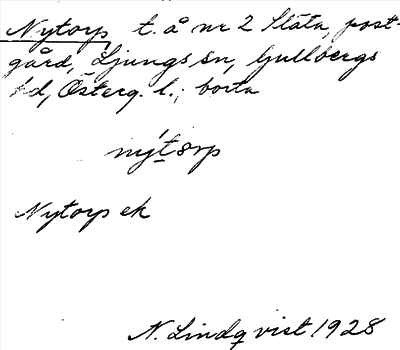 Nytorp t. å nr 2 Släta, post-
gård, Ljungs sn, Gullbergs
hd, Österg. l.; borta
nýtorp
Nytorp ek
N. Lindqvist 1928